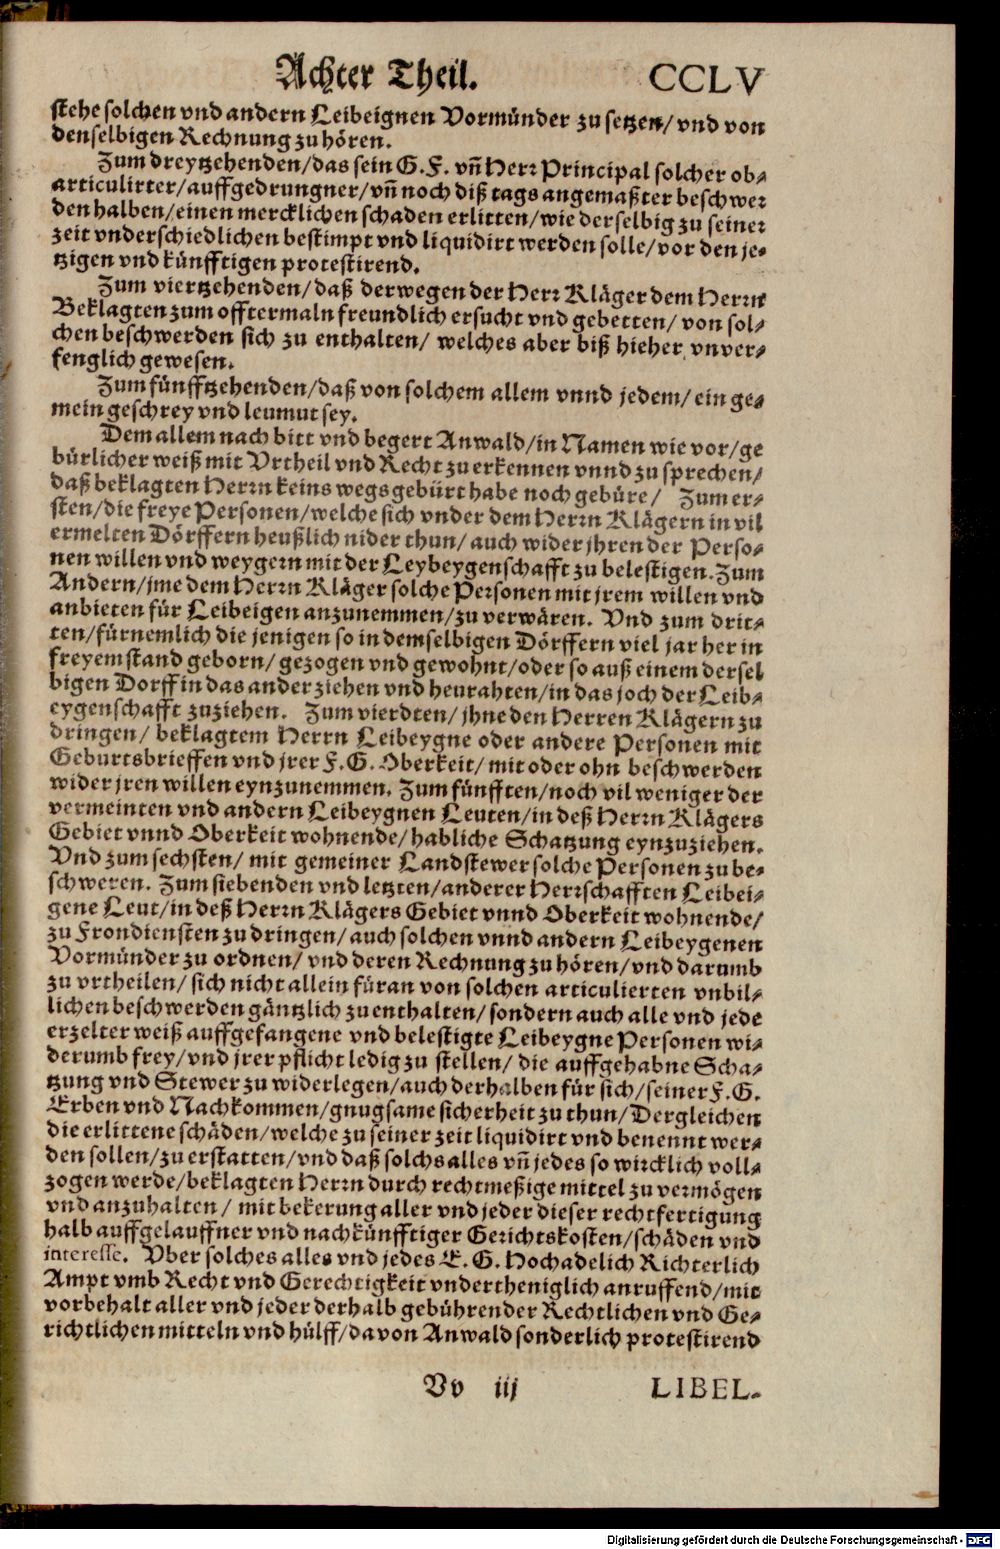 Achter Theil. CCLV
stehe solchen vnd andern Leibeignen Vormünder zu setzen/ vnd von
denselbigen Rechnung zu hören.
Zum dreytzehenden/ das sein G. F. vñ Herr Principal solcher ob-
articulirter/ auffgedrungner/ vñ noch diß tags angemaßter beschwer
den halben/ einen mercklichen schaden erlitten/ wie derselbig zu seiner
zeit vnderschiedlichen bestimpt vnd liquidirt werden solle/ vor den je-
tzigen vnd künfftigen protestirend.
Zum viertzehenden/ daß derwegen der Herr Kläger dem Herrn
Beklagten zum offtermaln freundlich ersucht vnd gebetten/ von sol-
chen beschwerden sich zu enthalten/ welches aber biß hieher vnver-
fenglich gewesen.
Zum fünfftzehenden/ daß von solchem allem vnnd jedem/ ein ge-
mein geschrey vnd leumut sey.
Dem allem nach bitt vnd begert Anwald/ in Namen wie vor/ ge
bürlicher weiß mit Vrtheil vnd Recht zu erkennen vnnd zu sprechen/
daß beklagten Herrn keins wegs gebürt habe noch gebüre/ Zum er-
sten/ die freye Personen/ welche sich vnder dem Herrn Klägern in vil
ermelten Dörffern heußlich nider thun/ auch wider jhren der Perso-
nen willen vnd weygern mit der Leybeygenschafft zu belestigen. Zum
Andern/ jme dem Herrn Kläger solche Personen mit jrem willen vnd
anbieten für Leibeigen anzunemmen/ zu verwären. Vnd zum drit-
ten/ fürnemlich die jenigen so in demselbigen Dörffern viel jar her in
freyem stand geborn/ gezogen vnd gewohnt/ oder so auß einem dersel
bigen Dorff in das ander ziehen vnd heurahten/ in das joch der Leib-
eygenschafft zuziehen. Zum vierdten/ jhne den Herren Klägern zu
dringen/ beklagtem Herrn Leibeygne oder andere Personen mit
Geburtsbrieffen vnd jrer F. G. Oberkeit/ mit oder ohn beschwerden
wider jren willen eynzunemmen. Zum fünfften/ noch vil weniger der
vermeinten vnd andern Leibeygnen Leuten/ in deß Herrn Klägers
Gebiet vnnd Oberkeit wohnende/ habliche Schatzung eynzuziehen.
Vnd zum sechsten/ mit gemeiner Landstewer solche Personen zu be-
schweren. Zum siebenden vnd letzten/ anderer Herrschafften Leibei-
gene Leut/ in deß Herrn Klägers Gebiet vnnd Oberkeit wohnende/
zu Frondiensten zu dringen/ auch solchen vnnd andern Leibeygenen
Vormünder zu ordnen/ vnd deren Rechnung zu hören/ vnd darumb
zu vrtheilen/ sich nicht allein füran von solchen articulierten vnbil-
lichen beschwerden gäntzlich zu enthalten/ sondern auch alle vnd jede
erzelter weiß auffgefangene vnd belestigte Leibeygne Personen wi-
derumb frey/ vnd jrer pflicht ledig zu stellen/ die auffgehabne Scha-
tzung vnd Stewer zu widerlegen/ auch derhalben für sich/ seiner F. G.
Erben vnd Nachkommen/ gnugsame sicherheit zu thun/ Dergleichen
die erlittene schäden/ welche zu seiner zeit liquidirt vnd benennt wer-
den sollen/ zu erstatten/ vnd daß solchs alles vñ jedes so wircklich voll-
zogen werde/ beklagten Herrn durch rechtmeßige mittel zu vermögen
vnd anzuhalten/ mit bekerung aller vnd jeder dieser rechtfertigung
halb auffgelauffner vnd nachkünfftiger Gerichtskosten/ schäden vnd
interesse. Vber solches alles vnd jedes E. G. Hochadelich Richterlich
Ampt vmb Recht vnd Gerechtigkeit vndertheniglich anruffend/ mit
vorbehalt aller vnd jeder derhalb gebührender Rechtlichen vnd Ge-
richtlichen mitteln vnd hülff/ davon Anwald sonderlich protestirend
Vv iij LIBEL.
Digitalisierung gefördert durch die Deutsche Forschungsgemeinschaft - DFG